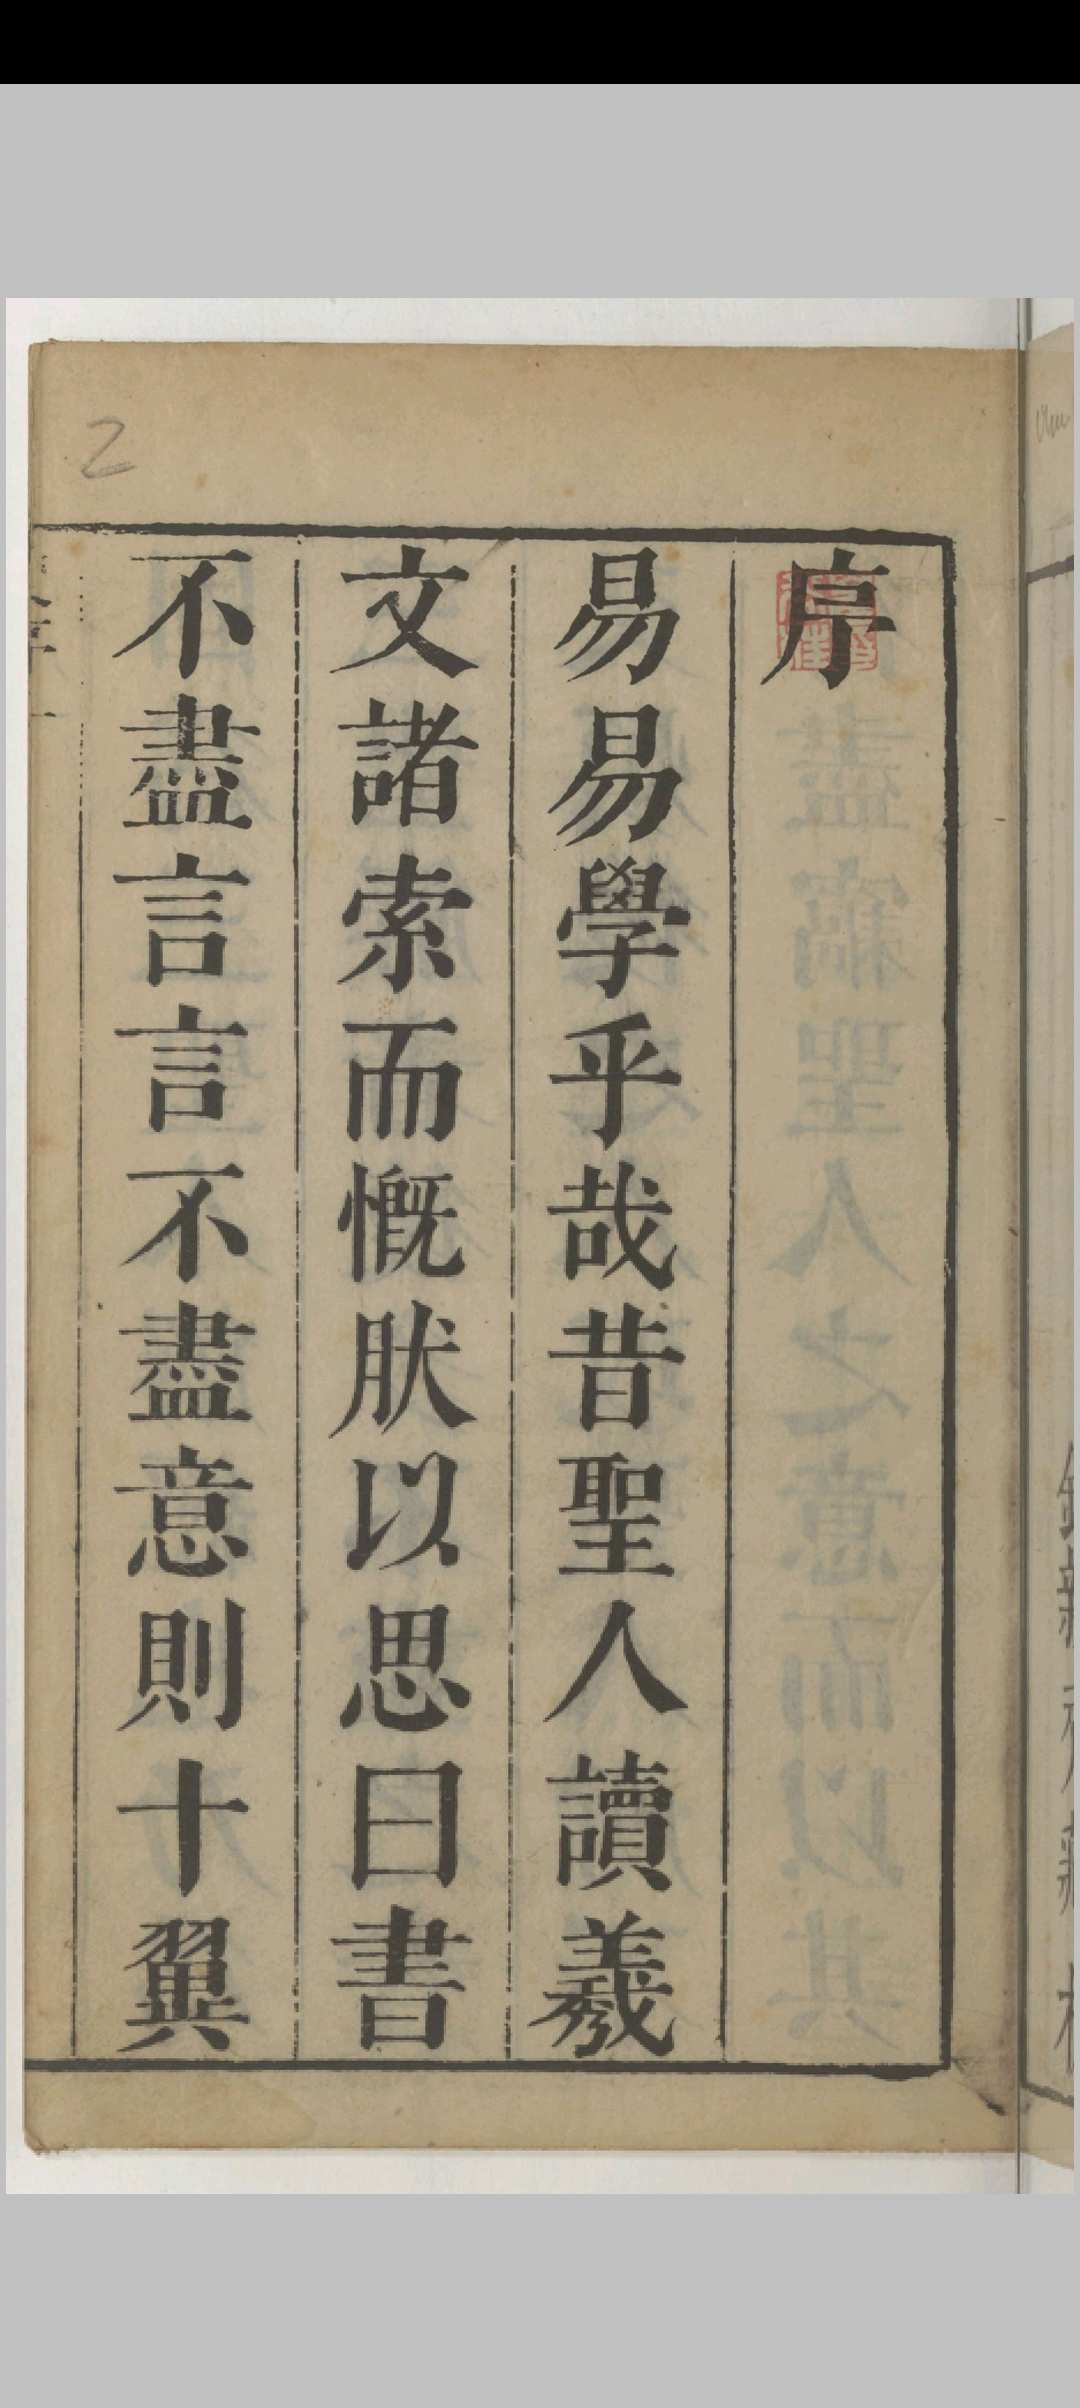 序
易易學乎哉昔聖人讀羲
文諸索而慨肰以思曰書
不盡言言不盡意則十翼
2